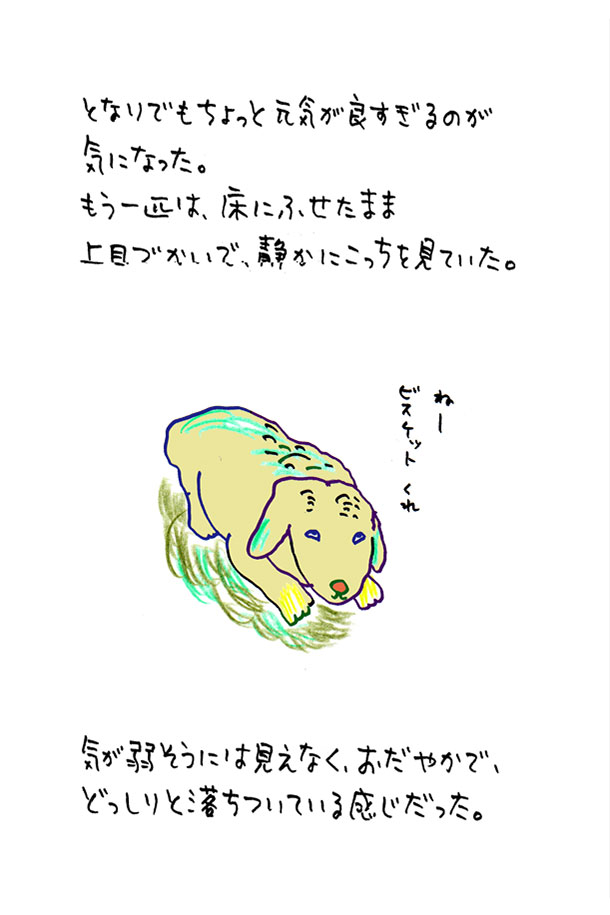 となりでもちょっと元気が良すぎるのが
気になった。
もう一匹は、床にふせたまま
上目づかいで、静かにこっちを見ていた。
ねー
ビスケット くれ
気が弱そうには見えなく、おだやかで、
どっしりと落ちついている感じだった。